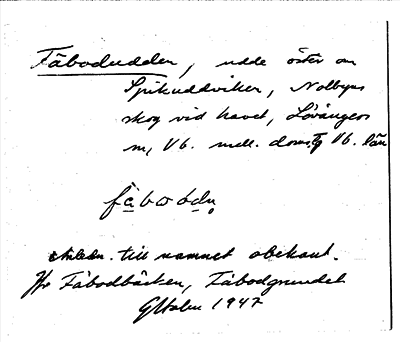 Fäbodudden, udde öster om
Spikuddviken, Nolbyns
skog vid havet, Lövångers
sn, Vb. mell. doms, Vb. län
fäbodn
anledn. till namnet obekant.
Jfr Fäbodbäcken, Fäbodgrundet
GHolm 1947